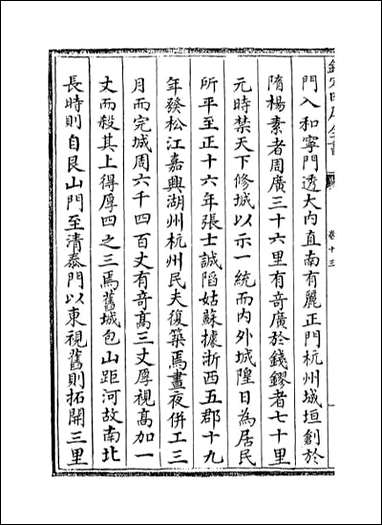 門入和寧門透大内直南有麗正門杭州城垣創於
隋楊素者周廣三十六里有竒廣於錢鏐者七十里
元時禁天下修城以示一統而内外城隍日為居民
所平至正十六年張士誠䧟姑蘇據浙西五郡十九
年發松江嘉興湖州杭州民夫復築焉晝夜併工三
月而完城周六千四百丈有竒髙三丈厚視髙加一
丈而殺其上得厚四之三焉舊城包山距河故南北
長時則自艮山門至清泰門以東視舊則拓開三里